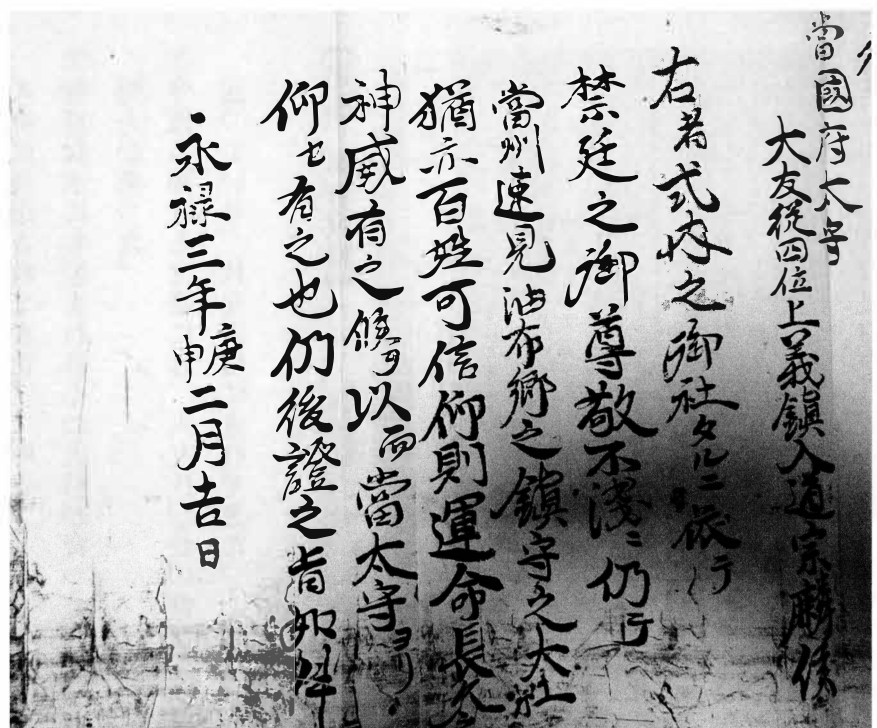 當國府太守
大友従四位上義鎮入道宗麟
右者式内之御社タルニ依テ
禁廷之御尊敬不淺ニ仍テ
當州速見油布郷之鎮守之大社
猶亦百姓可信仰則運命長久
神威有之候可以而當太守ヨリ
仰セ有之也仍後證之旨如件
永禄三年庚申二月吉日